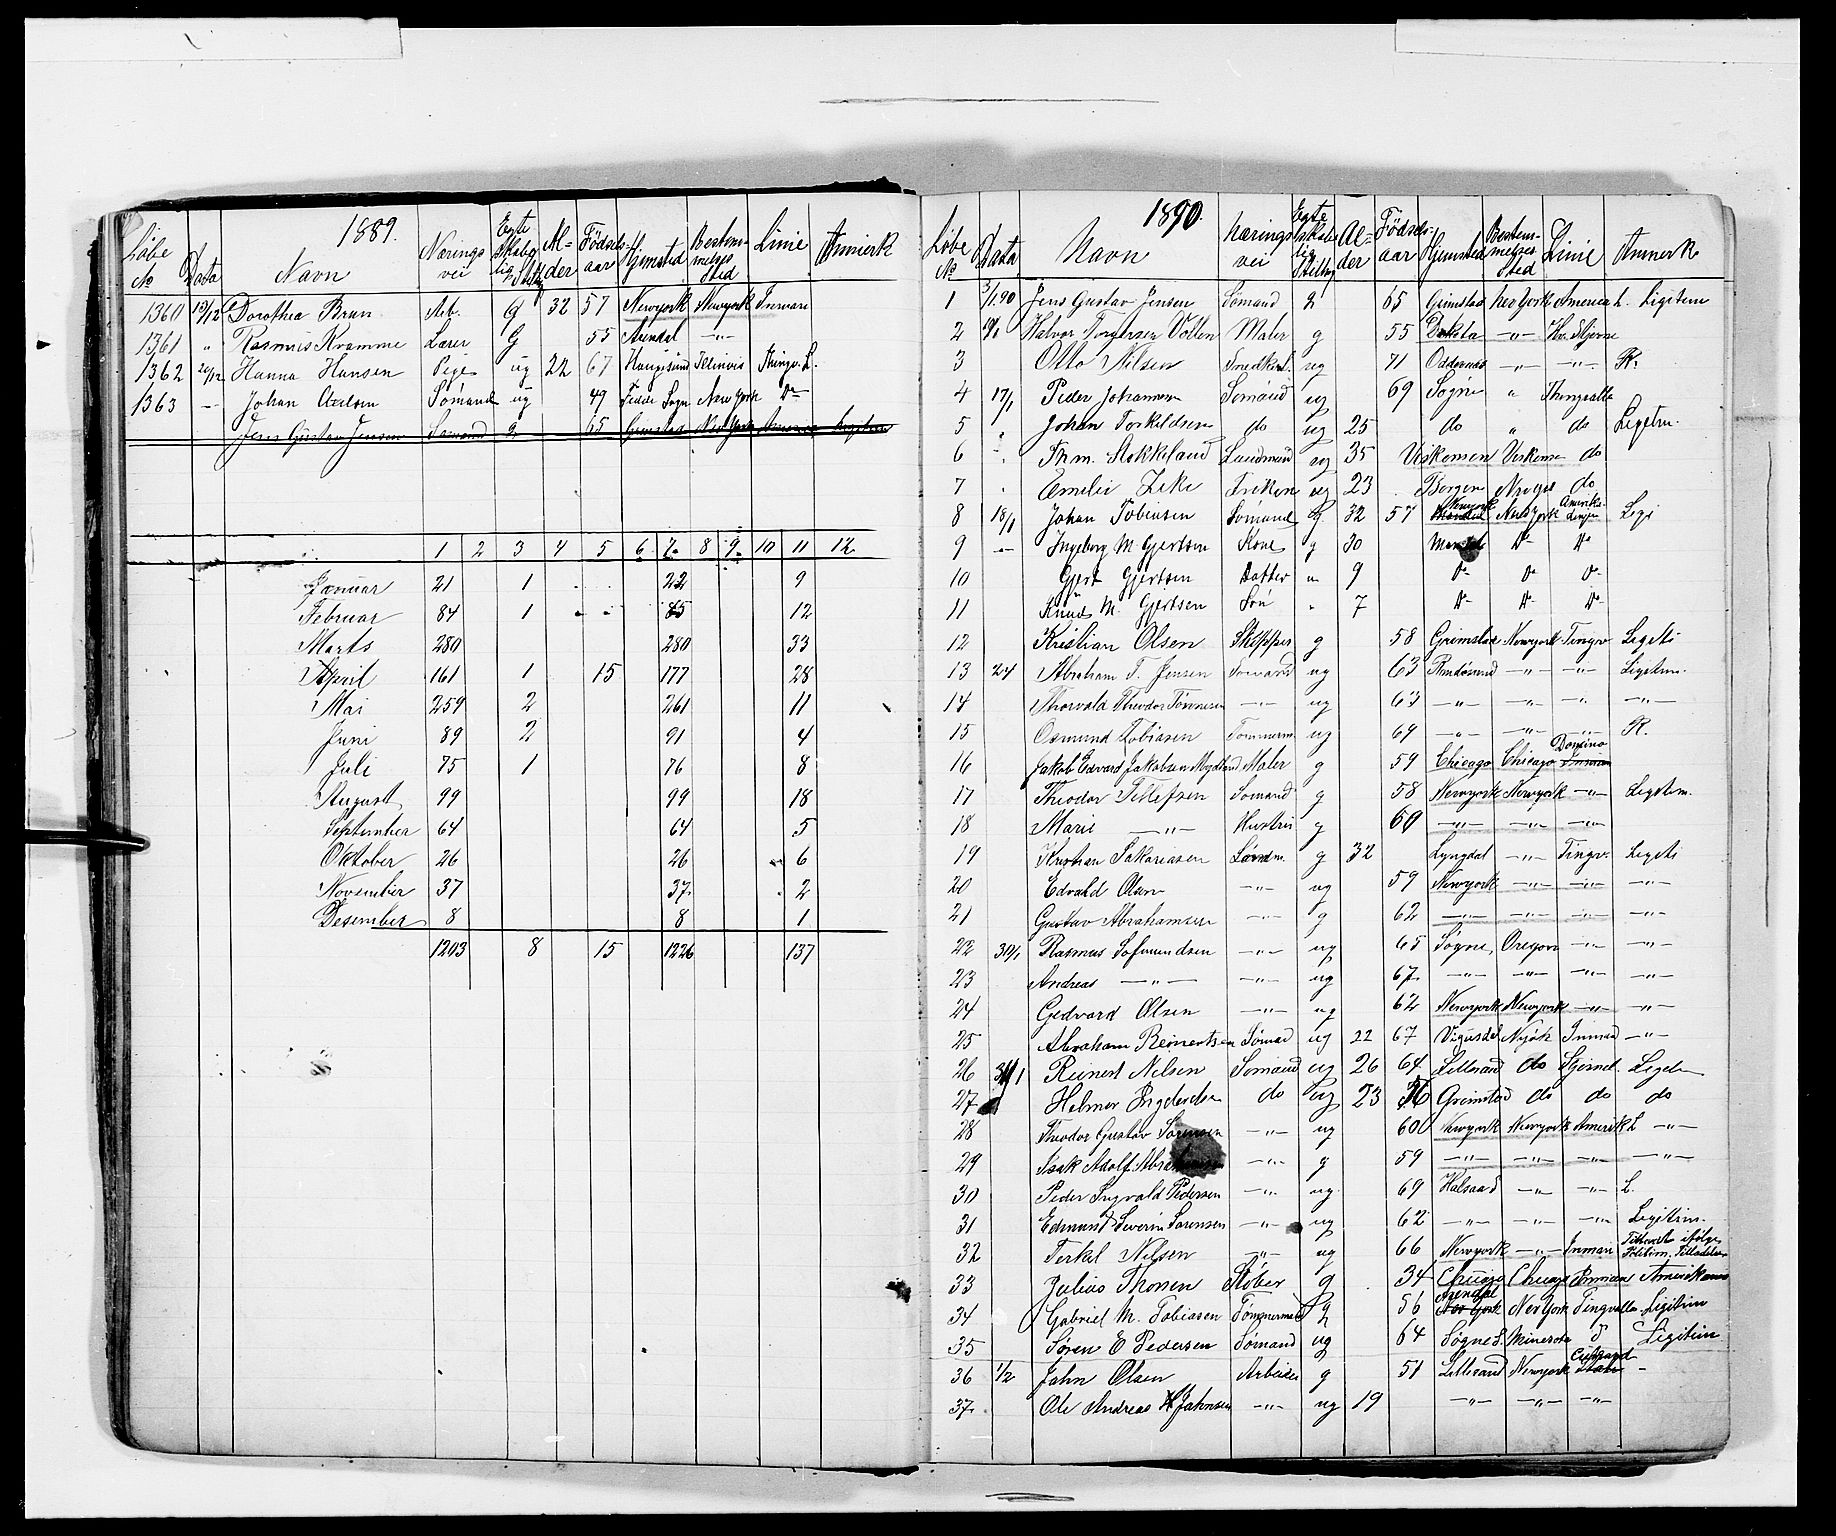 1889.
Løbe No Data Navn Nærings vei Egte skabelig Stilling Alder Fødselsaar Hjemsted Bestemmelses Sted Linie Anmerk
1360 13/12 Dorothea Brun Arb. G 32 57 Newyork Newyork Inman
1361 " Rasmus Kramme Lærer G 55 Arendal -"-
1362 20/12 Hanna Hansen Pige ug 22 67 Haugesund Ilinois Thingv. L.
1363 -"- Johan Axelsen Sømand ug 49 Fedde Sogn New York Do
Jens Gustav Jensen Sømand g 65 Grimstad New York America Legitim
1 2 3 4 5 6 7. 8 9. 10 11 12
Januar 21 1 22 9
Februar 84 1 85 12
Marts 280 280 33
April 161 1 15 177 28
Mai 259 2 261 11
Juni 89 2 91 4
Juli 75 1 76 8
August 99 99 18
September 64 64 5
Oktober 26 26 6
November 37 37 2
Desember 8 8 1
1203 8 15 1226 137
1890.
Løbe No Data Navn Nærings vei Egte skabelig Stilling Alder Fødselsaar Hjemsted Bestemmelses Sted Linie Anmerk
1 3/1.90 Jens Gustav Jensen Sømand g 65 Grimstad New York America L. Legitim
2 Halvor Vollen Maler g 55 Dakota -"- Stjerne
3 Otto Nilsen Smedk. ug 71 Oddernes -"- -"- R.
4 17/1 Peder Johannesen Sømand ug 69 Søgne " Thingvalla
5 Johan Torkildsen do ug 25 do " do Legetm.
6 Thm. Stokkeland Landmand ug 35 Viskonsen Viskonsn do
7 Emilie Zeke Frøken ug 23 Bergen do
8 18/1 Johan Tobiasen Sømand g 32 57 Mandal Newyork New York Amerika Linjen Legi
9 -"- Ingeborg M. Gjertsen Kone g 30 Mandal Do Do
10 Gjert Gjertsen Datter " 9 Do Do Do
11 Knud M. Gjertsen Søn " 7 Do Do Do
12 Kristian Olsen Skipper g 58 Grimstad Newyork Tingv. Legeti
13 24 Abraham T. Jensen Sømand ug 63 Randøsund -"- -"- Legetim.
14 Thorvald Theodor Tønnesen -"- ug 63 -"- -"- -"- -"-
15 Osmund Tobiasen Tømmerm. ug 69 -"- -"- -"- R.
16 Jakob Edvard Jakobsen Mydland Maler g 59 Chicago Chicago Domino Inman
17 Theodor Tellefsen Sømand g 58 Newyork Newyork -"- Legetim.
18 Marie -"- Hustru g 60 -"- -"- -"-
19 Kristian Sakariasen Landm. g 32 Lyngdal -"- Tingv. Legeti
20 Edvald Olsen -"- ug 59 Newyork -"- -"- -"-
21 Gustav Abrahamsen -"- g 62 -"- -"- -"- -"-
22 30/1 Rasmus Sofmundsen -"- ug 65 Søgne Oregon -"- -"-
23 Andreas -"- -"- ug 67 -"- -"- -"- -"-
24 Gedvard Olsen -"- ug 62 Newyork Newyork -"- -"-
25 Abraham Reinertsen Sømand ug 22 67 Nyork Inman -"-
26 31/1 Reinert Nilsen Sømand ug 26 64 Lillesand do Stjernel. Legetm
27 Helmer do ug 23 Grimstad do do do
28 Theodor Gustav Sørensen -"- ug 60 Newyork Newyork Amerik L -"-
29 Isak Adolf Abrahamsen -"- g 59 -"- -"- -"- -"-
30 Peder Ingvald Pedersen -"- ug 69 Halsaa d -"- -"- L.
31 Edmund Severin Sørensen -"- ug 62 -"- -"- -"- Legitim.
32 Terkel Nilsen -"- ug 66 Newyork -"- Inman ifølge Politim. Tilladelse
33 Julius Thonen Støber g 34 Chicago Chicago Inman Amerikaner
34 Gabriel M. Tobiasen Tømmermand g 56 New York Arendal New York Tingvalla Legitim
35 Søren E Pedersen Sømand ug 64 Søgne S. Minesota Do Legitim
36 1/2 John Olsen Arbeider g 51 Lillesand Newyork Cunard -
37 Ole Andreas Jahnsen -"- ug 19 -"- -"- -"-